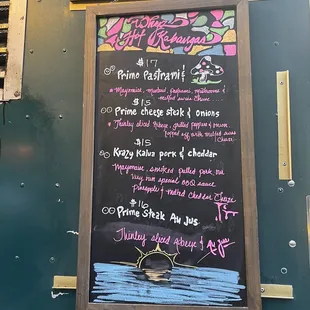 Hot Kabangas
$17
Primo Pastrami &
Mayonaise, mustard, pastrami, mushrooms &
melted swiss Cheese
$15
Prime cheese steak & onions
Thinley sliced Ribeye, grilled peppers & onions
topped off with melted swiss
Cheese
$15
Krazy Kalua pork & cheddar
Mayonaise, smoked pulled pork,
special BBQ sauce
Pineapple & melted cheddar Cheese
$16
Prime Steak Au Jus
Thinley sliced ribeye & Au Jus